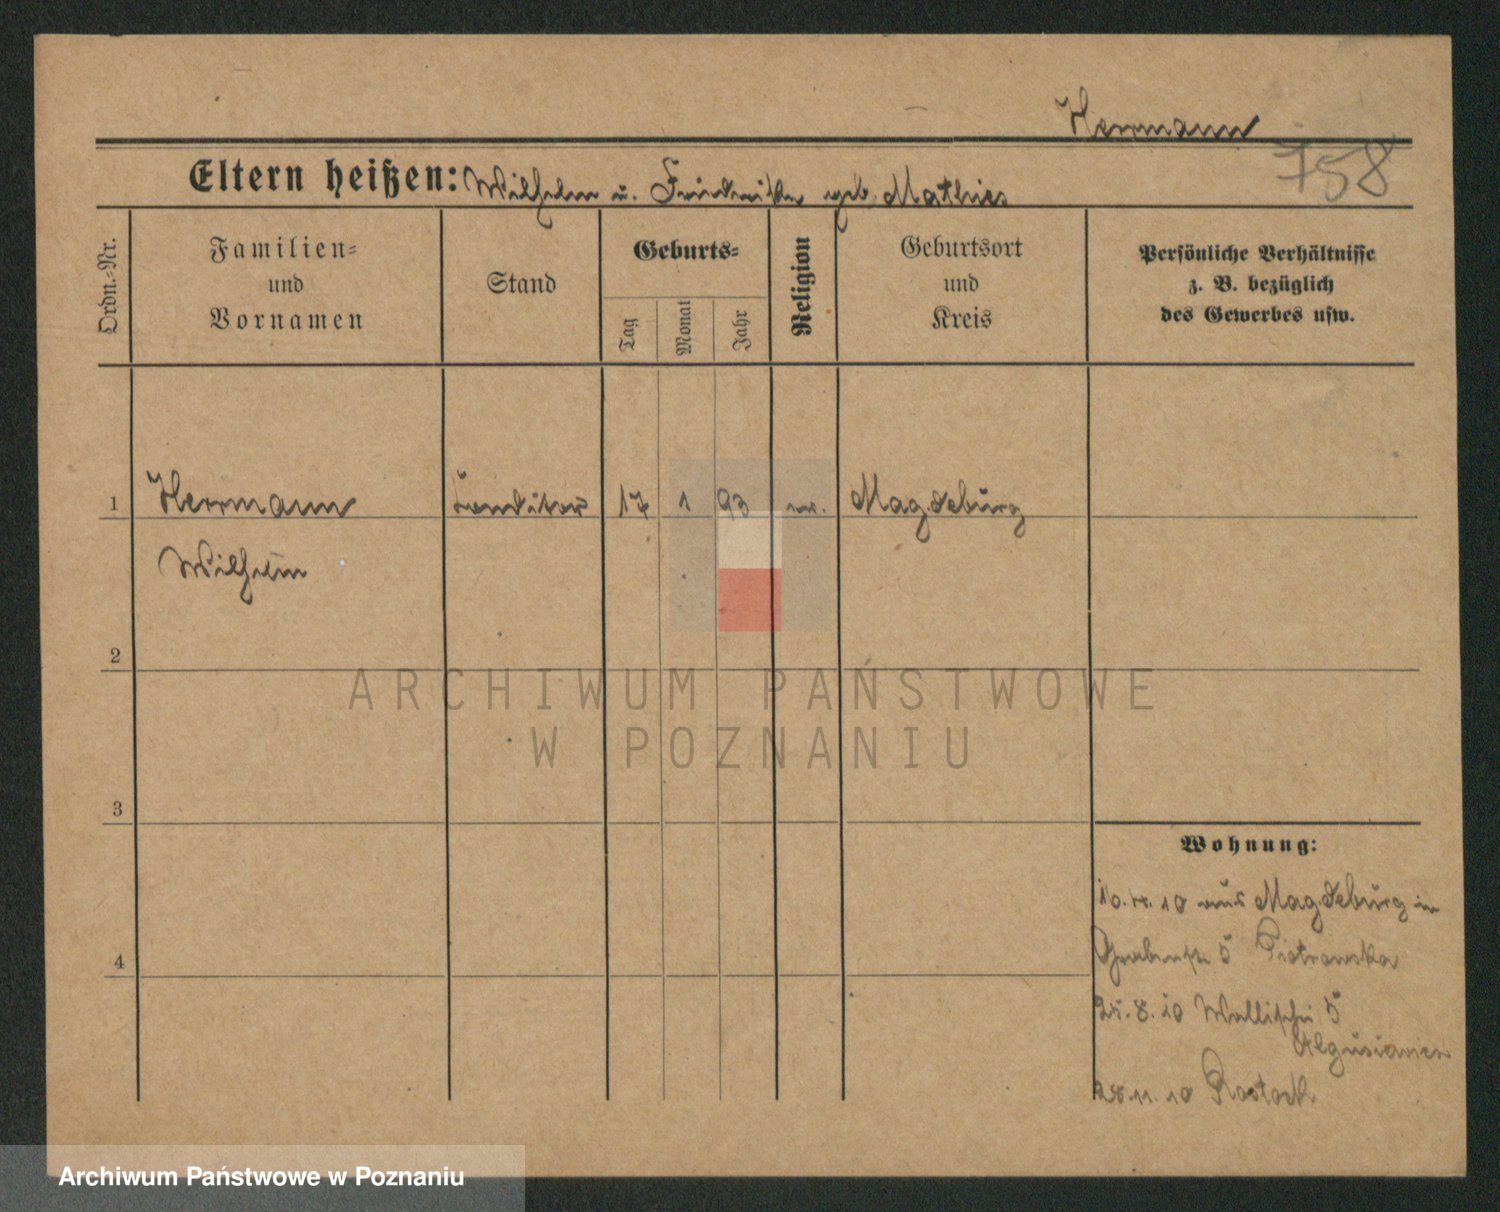 Herrmann
758
Eltern heißen: Wilhelm u. Friederike geb. Mathies
Ordn.-Nr.
Familien-
und
Vornamen
Stand
Geburts-
Tag
Monat
Jahr
Religion
Geburtsort
und
Kreis
Persönliche Verhältnisse
z. B. bezüglich
des Gewerbes usw.
1 Herrmann Konditor 17 1 93 ev. Magdeburg
Wilhelm
2
3
4
ARCHIWUM PAŃSTWOWE
W POZNANIU
Wohnung:
10. 10 aus Magdeburg in
Grabenstr 5 Piotrowska
25. 8. 10 Wallischei 5
28. 11. 10 Rostock
Archiwum Państwowe w Poznaniu